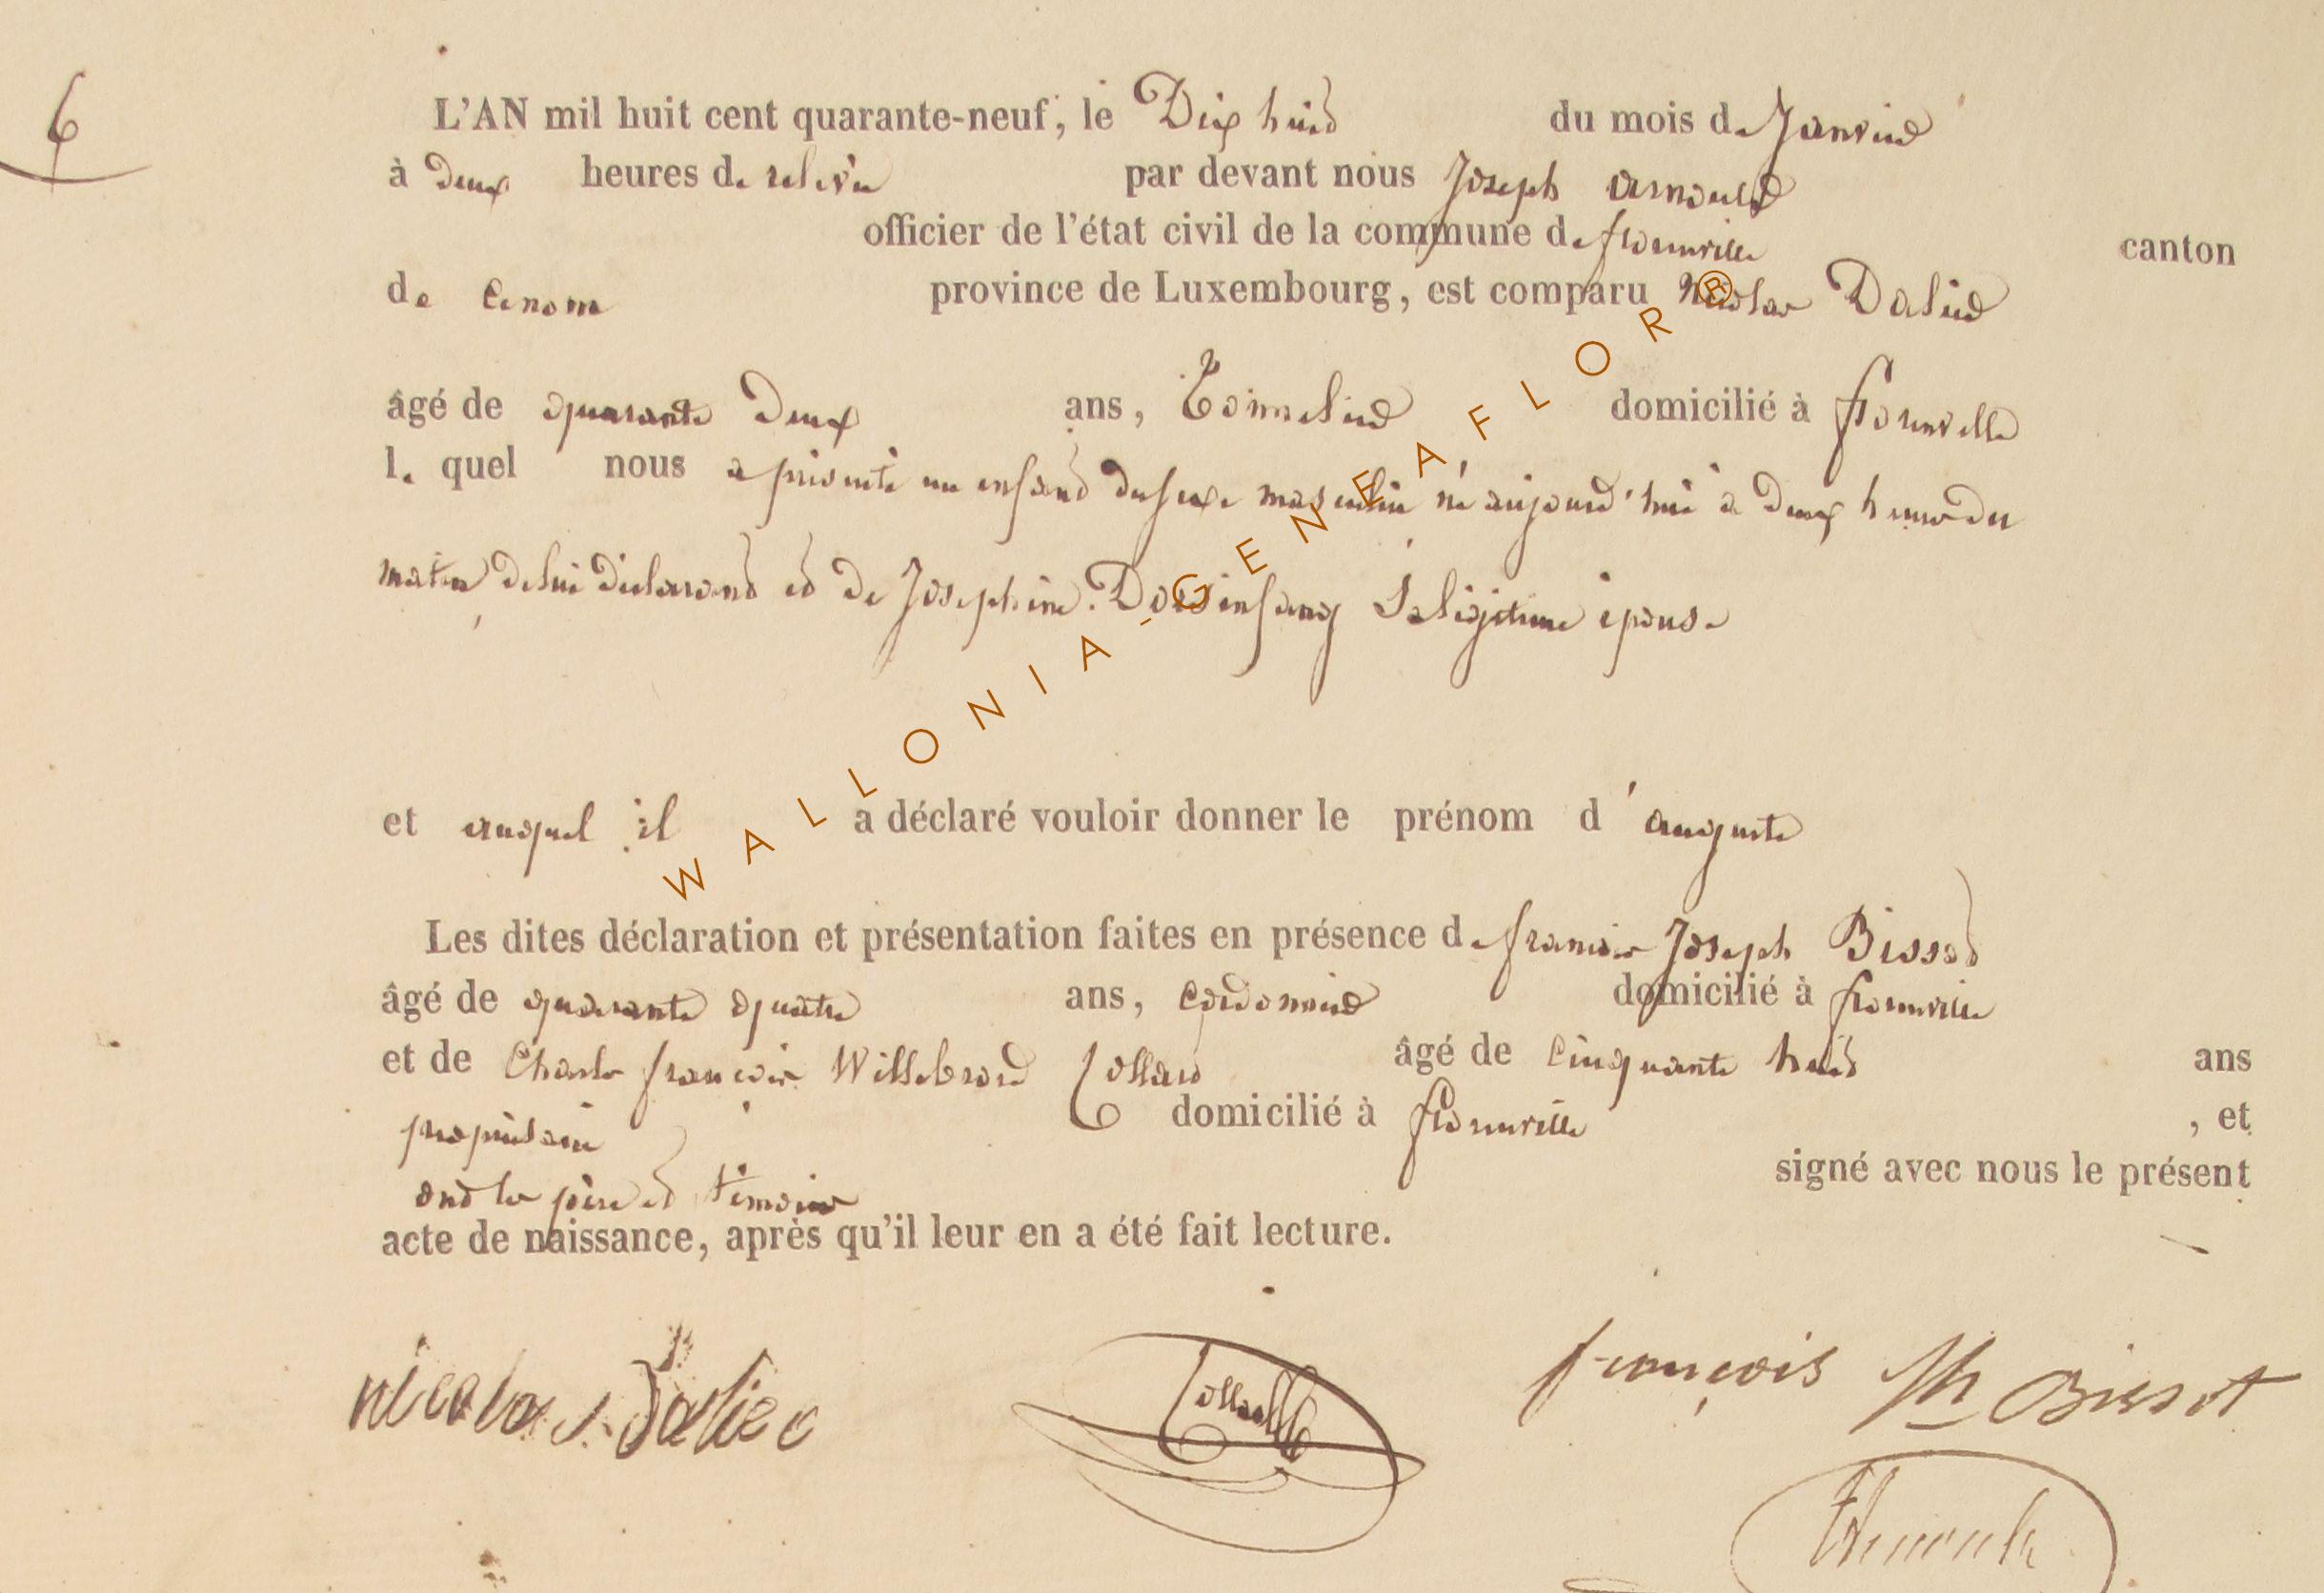 6
L'AN mil huit cent quarante-neuf, le Dix huit du mois de Janvier
à deux heures de relevée par devant nous Joseph arnould
officier de l'état civil de la commune de florenville canton
de province de Luxembourg, est comparu Nicolas Dalier
âgé de quarante deux ans, Tonnelier domicilié à florenville
le quel nous a présenté un enfant du sexe masculin né aujourd'hui à deux heures du
matin de lui déclarant et de Josephine Sa légitime épouse
et auquel il a déclaré vouloir donner le prénom d'auguste
Les dites déclaration et présentation faites en présence de francois Joseph Bissot
âgé de quarante quatre ans, cordonnier domicilié à florenville
et de Charles françois Willebrord Collard âgé de cinquante huit ans
propriétaire domicilié à florenville, et
ont les père et témoins signé avec nous le présent
acte de naissance, après qu'il leur en a été fait lecture.
nicolas Dalier Collard françois Jh Bissot
WALLONIA-GENEAFLOR®